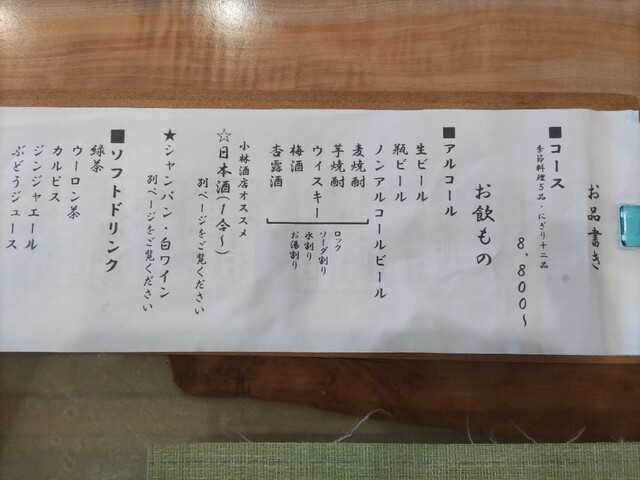 お品書き
■コース
季節料理5品・にぎり十二品
8,800～
お飲もの
■アルコール
生ビール
瓶ビール
ノンアルコールビール
麦焼酎
芋焼酎
ウィスキー
梅酒
杏露酒
ロック
ソーダ割り
水割り
お湯割り
小林酒店オススメ
☆日本酒(1合～)
別ページをご覧ください
★シャンパン・白ワイン
別ページをご覧ください
■ソフトドリンク
緑茶
ウーロン茶
カルピス
ジンジャエール
ぶどうジュース